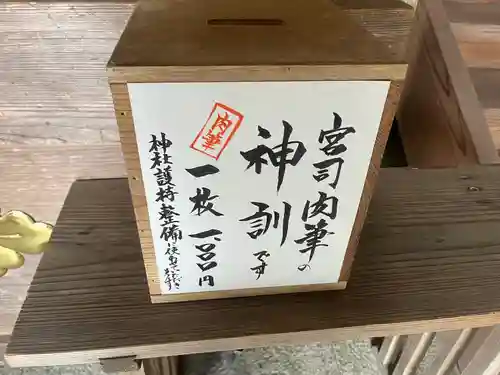 宮司肉筆の
神訓です
肉筆
一枚 一、〇〇〇円
神社護持整備に使わさせて頂きます